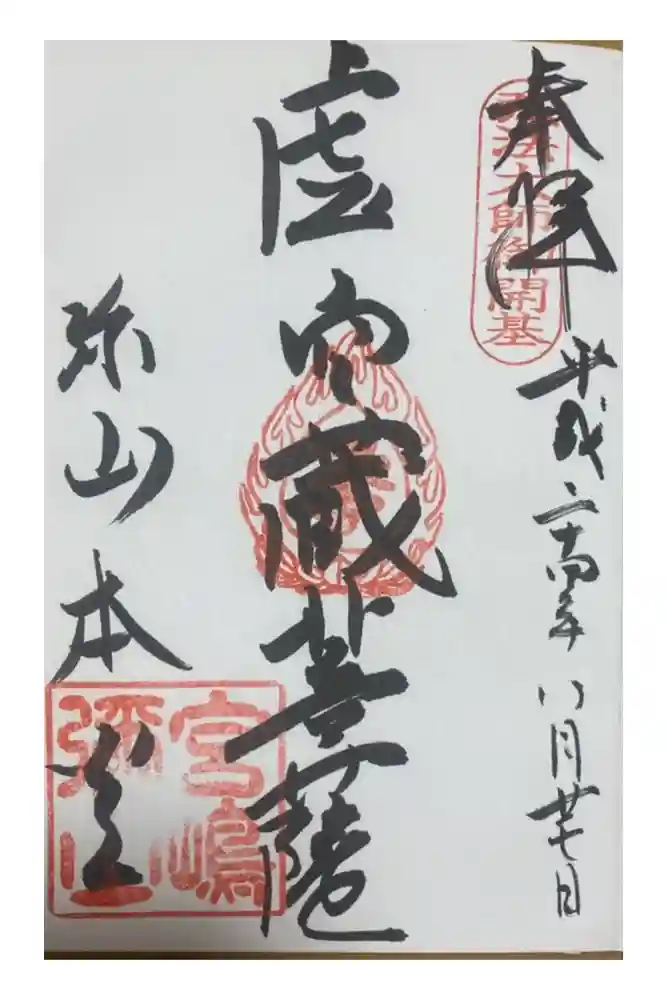 奉拝
弘法大師御開基
平成二十四年八月廿七日
虚空蔵菩薩
弥山本堂
宮嶋
彌山